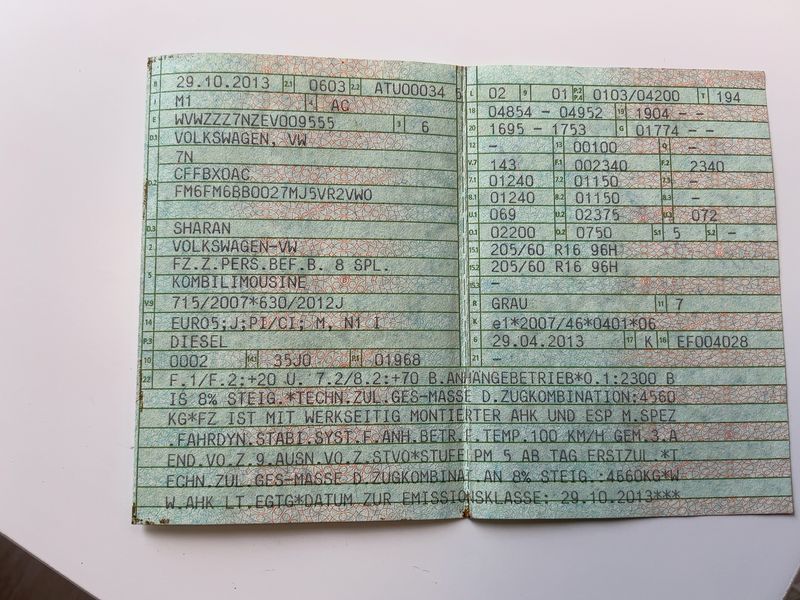 B 29.10.2013 2.1 0603 2.2 ATU00034 6
J M1 4 AC
E WVWZZZ7NZEV009555 3 6
D.1 VOLKSWAGEN, VW
7N
CFFBX0AC
D.2 FM6FM6BB0027MJ5VR2VW0
D.3 SHARAN
2 VOLKSWAGEN-VW
5 FZ.Z.PERS.BEF.B. 8 SPL.
KOMBILIMOUSINE
V.9 715/2007*630/2012J
14 EURO5;J;PI/CI; M, N1 I
P.3 DIESEL
10 0002 14.1 35J0 P.1 01968
L 02 9 01 P.2 P.4 0103/04200 T 194
18 04854 - 04952 19 1904 - -
20 1695 - 1753 G 01774 - -
12 - 13 00100 Q -
V.7 143 F.1 002340 F.2 2340
7.1 01240 7.2 01150 7.3 -
8.1 01240 8.2 01150 8.3 -
U.1 069 U.2 02375 U.3 072
O.1 02200 O.2 0750 S.1 5 S.2 -
15.1 205/60 R16 96H
15.2 205/60 R16 96H
15.3 -
R GRAU 11 7
K e1*2007/46*0401*06
6 29.04.2013 17 K 16 EF004028
21 -
22 F.1/F.2:+20 U. 7.2/8.2:+70 B.ANHÄNGEBETRIEB*O.1:2300 B
IS 8% STEIG.*TECHN.ZUL.GES-MASSE D.ZUGKOMBINATION:4560
KG*FZ IST MIT WERKSEITIG MONTIERTER AHK UND ESP M.SPEZ
.FAHRDYN.STABI.SYST.F.ANH.BETR.E.TEMP.100 KM/H GEM.3.A
END.VO.Z.9.AUSN.VO.Z.STVO*STUFE PM 5 AB TAG ERSTZUL.*T
ECHN.ZUL.GES-MASSE D.ZUGKOMBINAT.AN 8% STEIG.:4560KG*W
W.AHK LT.EGTG*DATUM ZUR EMISSIONSKLASSE: 29.10.2013***